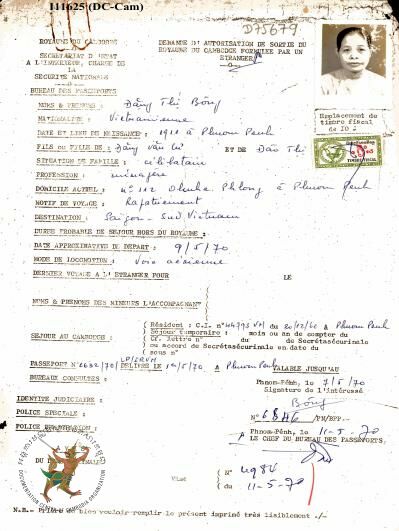 111625 (DC-Cam)
D75679
ROYAUME DU CAMBODGE
SECRETARIAT D'ETAT
A L'INTERIEUR, CHARGE DE
LA
SECURITE NATIONALE
BUREAU DES PASSEPORTS
DEMANDE D'AUTORISATION DE SORTIE DU
ROYAUME DU CAMBODGE FORMULEE PAR UN
ETRANGER
Emplacement de
timbre fiscal
de 10
NOMS & PRENOMS : Đặng Thị Bông
NATIONALITE : Vietnamienne
DATE ET LIEU DE NAISSANCE : 1911 à Phnom Penh
FILS OU FILLE DE : Đặng văn Tư ET DE Đào Thị
SITUATION DE FAMILLE : célibataire
PROFESSION : ménagère
DOMICILE ACTUEL : N° 112 Phlong à Phnom Penh
MOTIF DE VOYAGE : Rapatriement
DESTINATION : Saigon - Sud Vietnam
DUREE PROBABLE DE SEJOUR HORS DU ROYAUME :
DATE APPROXIMATIVE DU DEPART : 9/5/70
MODE DE LOCOMOTION : Voie aérienne
DERNIER VOYAGE A L'ETRANGER POUR LE
NOMS & PRENOMS DES MINEURS L'ACCOMPAGNANT
SEJOUR AU CAMBODGE :
Résident : C.I. n° VN du à Phnom Penh
Séjour temporaire : mois ou an de compter du
Cf. lettre n° du de Secrétasécurinale
ou accord de Secrétasécurinale en date du
sous n°
PASSEPORT N° DELIVRE LE à Phnom Penh VALABLE JUSQU'AU
BUREAUX CONSULTES :
Phnom-Pénh, le 7/5/70
Signature de l'intéressé
Bông
IDENTITE JUDICIAIRE :
POLICE SPECIALE :
POLICE
N° /PN/BPP.-
Phnom-Pénh, le 11-5-70
LE CHEF DU BUREAU DES PASSEPORTS,
DU NATIONALE
VISA
N° 4984
du 11-5-70
DOCUMENTATION CENTER OF CAMBODIA
N.B.- Prière de bien vouloir remplir le présent imprimé très lisiblement ./-